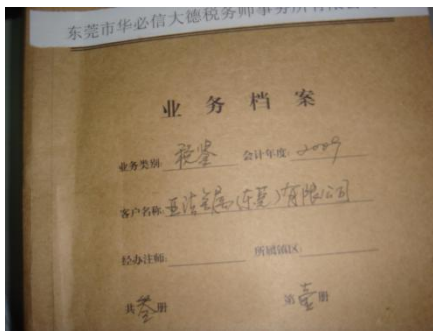 东莞市华必信大德税务师事务所有限公
业务档案
业务类别: 税鉴 会计年度: 2009
客户名称: 亚洁金属(东莞)有限公司
经办注师: 所属镇区:
共叁册 第壹册